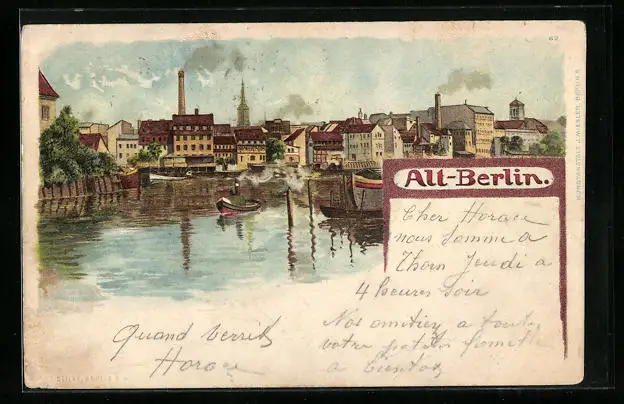 62
Alt-Berlin.
KUNSTANSTALT J. MIESLER, BERLIN S.
Cher Horace
nous somme a
Thorn Jeudi a
4 heures soir
Nos amitiez a toute
votre petite famille
a bientot
Quand verrez
Horace